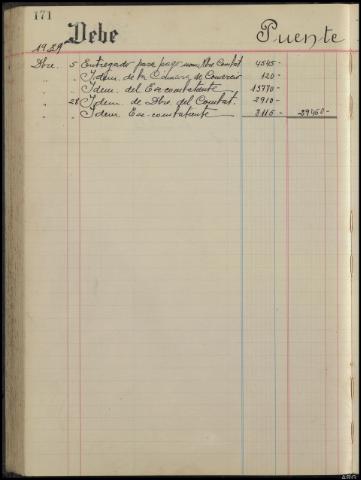 171
Debe Puente
19
Dbre. 5 Entregado para pago nom. Nbre Combat. 4545-
" " Idem. de la Cámara de Comercio 120-
" " Idem. del Ex-combatiente 15770-
" 28 Idem. de Dbre del Combat. 2910-
" " Idem Ex-combatiente 2115- 29460-